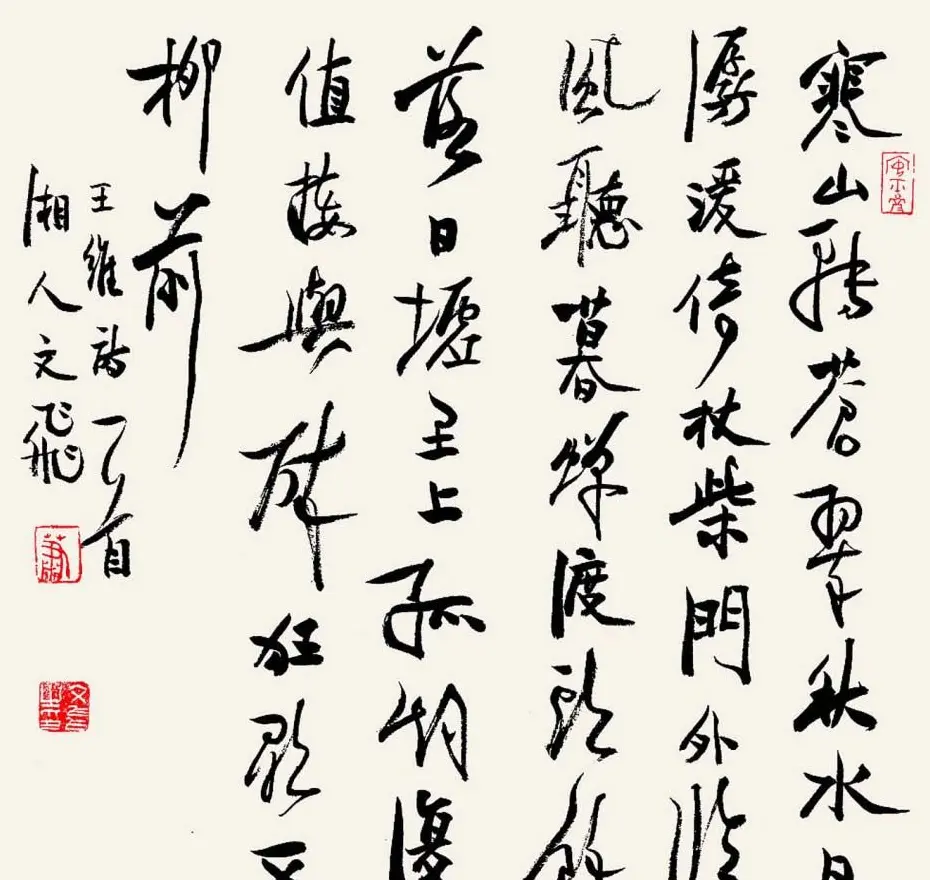 寒山轉蒼翠秋水日
潺湲倚杖柴門外臨
風聽暮蟬渡頭餘
落日墟里上孤烟復
值接輿醉狂歌五
柳前
王維詩一首
湘人文飛